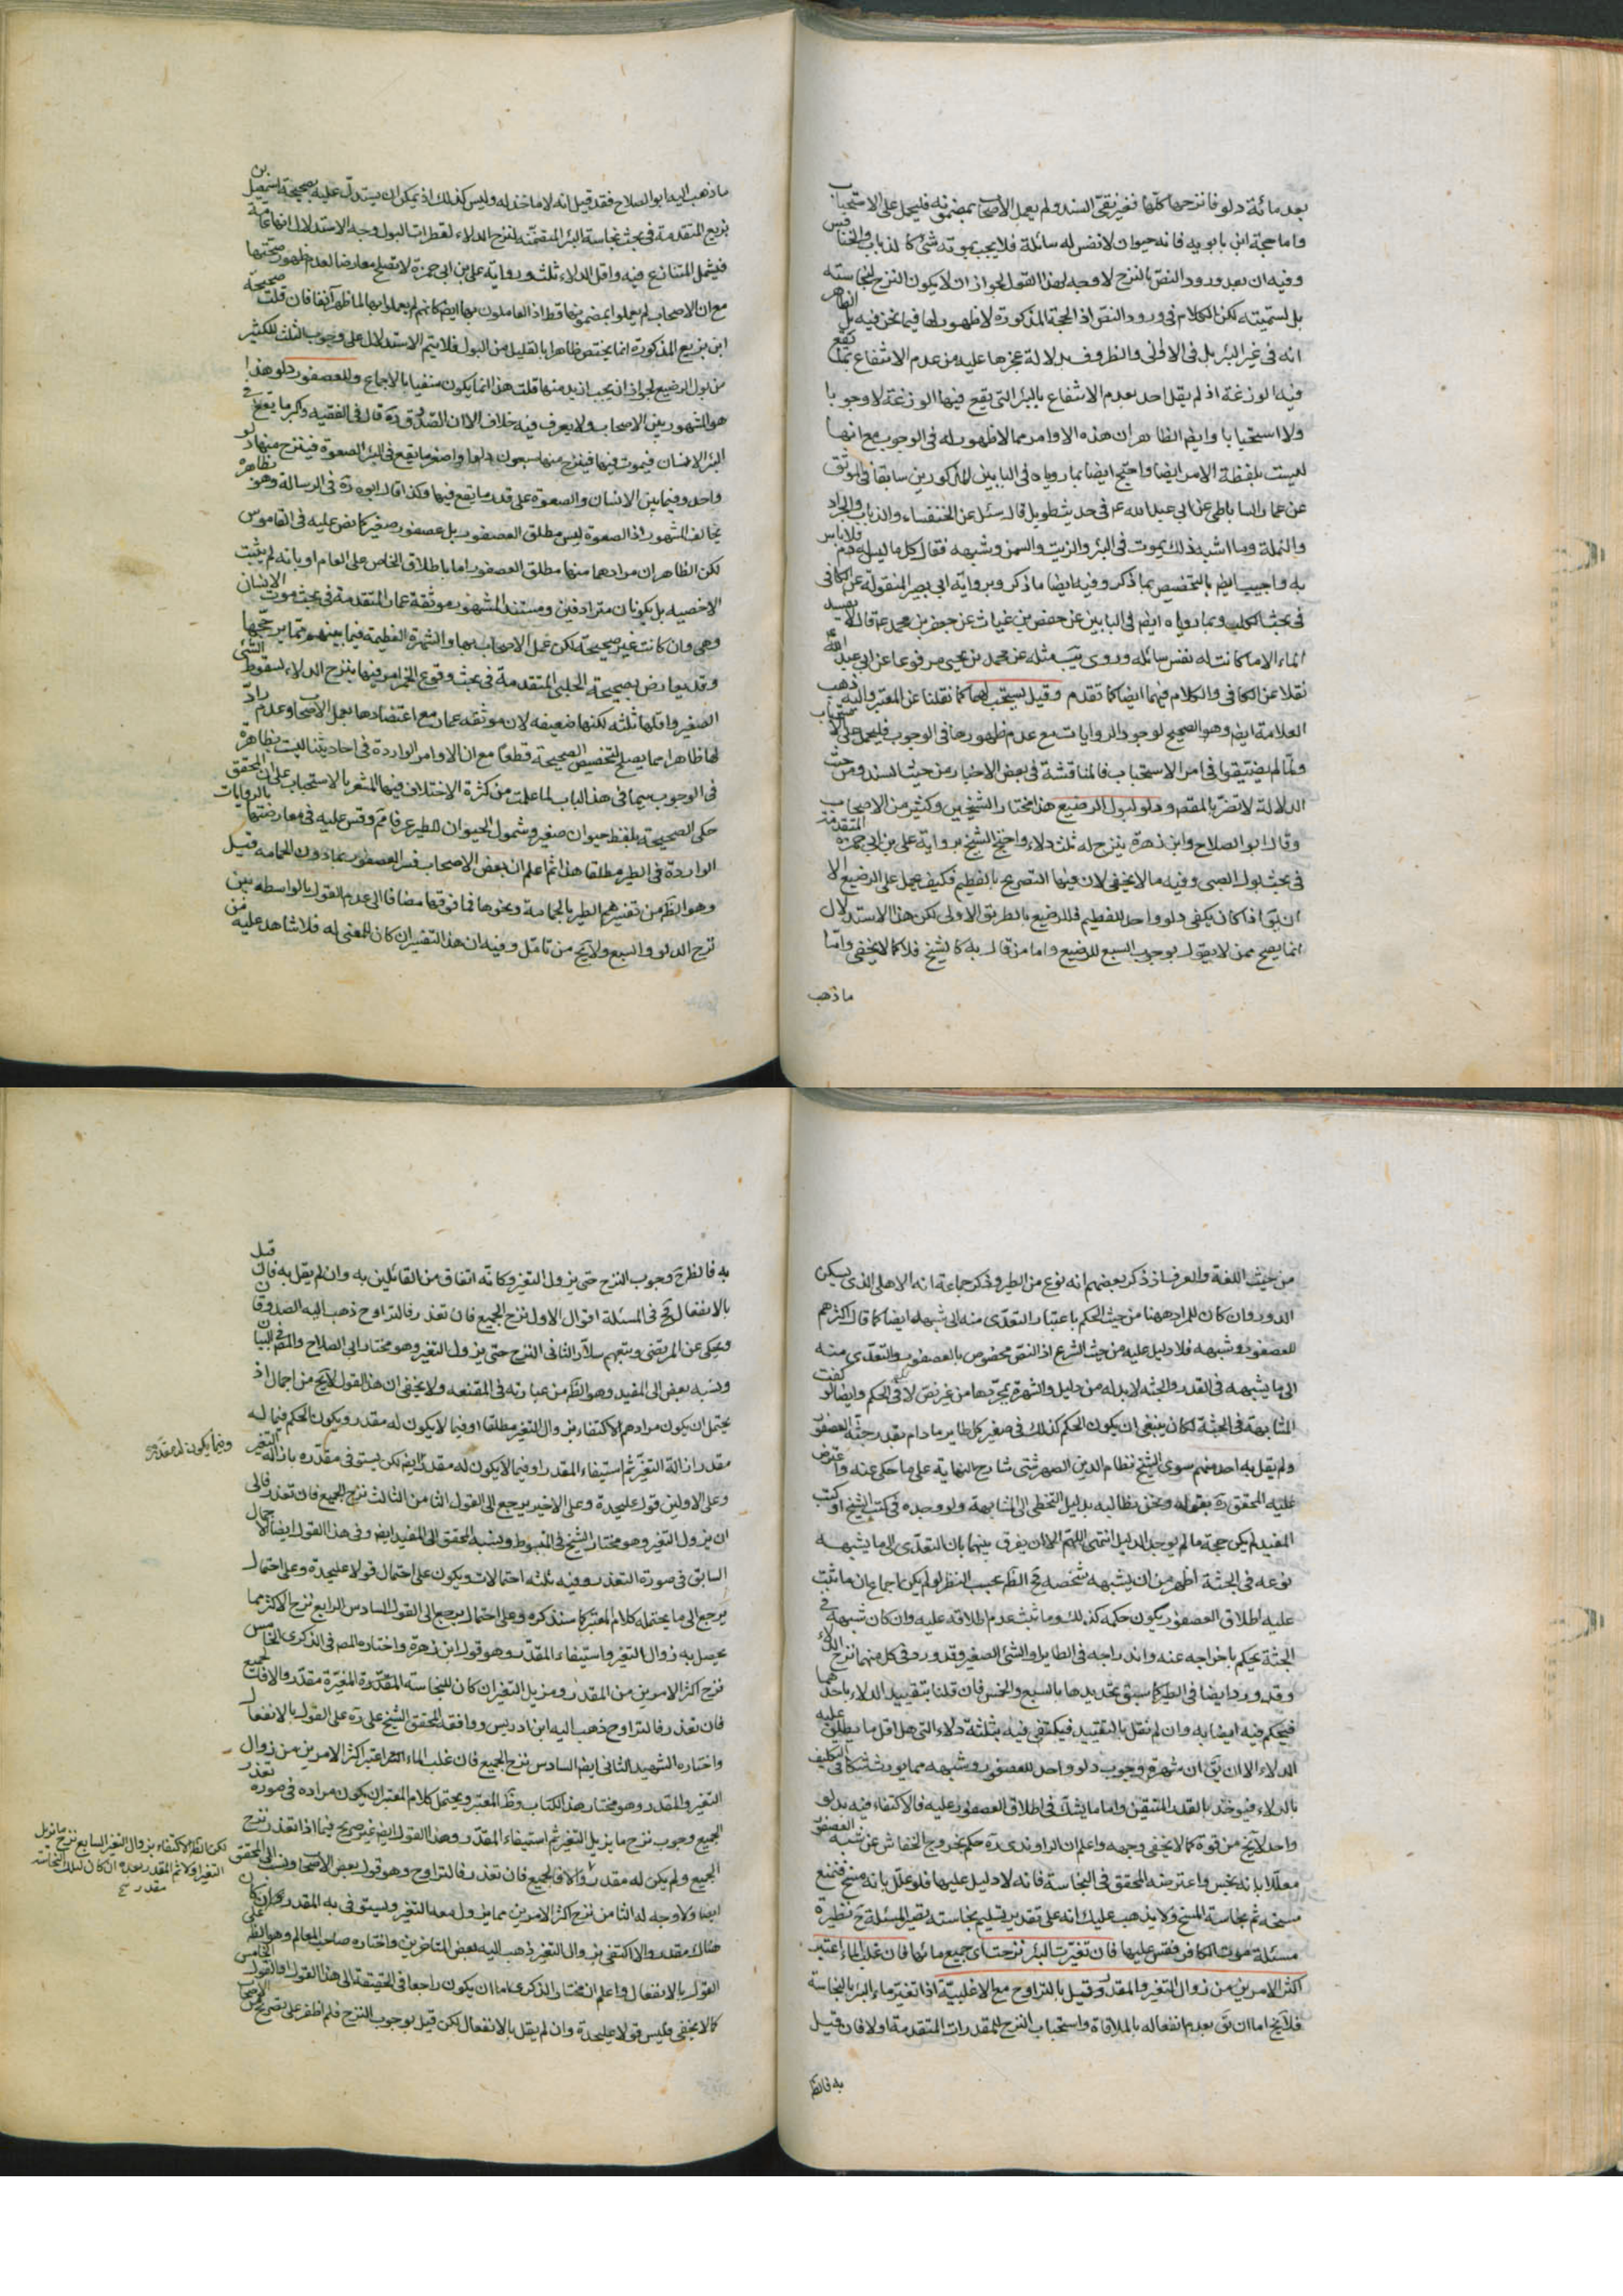 بعد مائة دلو فانزحها كلّها فغير نقىّ السند ولم يعمل الأصحاب بمضمونه فليحمل على الاستحباب
واما حجة ابن بابويه فانه حيوان لا نفس له سائلة فلا يجب بموته شئ كالذباب والخنافس
وفيه ان بعد ورود النصّ بالنزح لا وجه لهذا القول لجواز ان لا يكون النزح لنجاسته
بل لسميته لكن الكلام فى ورود النصّ اذ الحجة المذكورة لا ظهور لها فيما نحن فيه بل الظاهر
انه فى غير البئر بل فى الاوانى والظروف بدلالة عجزها عليه من عدم الانتفاع بما يقع
فيه الوزغة اذ لم يقل احد بعدم الانتفاع بالبئر التى يقع فيها الوزغة لا وجوبا
ولا استحبابا وايضم الظاهر ان هذه الاوامر مما لا ظهور له فى الوجوب مع انها
ليست بلفظة الامر ايضا واحتج ايضا بما روياه فى البابين المذكورين سابقا فى الموثق
عن عمار الساباطى عن ابى عبد الله ع فى حديث طويل قال سئل عن الخنفساء والذباب والجراد
والنملة وما اشبه ذلك يموت فى البئر والزيت والسمن وشبهه فقال كل ما ليس له دم فلا باس
به واجيب ايضم بالتخصيص بما ذكر وفيه ايضا ما ذكر وبرواية ابى بصير المنقولة عن الكافى
فى بحث الكلب وبما روياه ايضم فى البابين عن حفص بن غياث عن جعفر بن محمد ع قال لا يفسد
الماء الا ما كانت له نفس سائله وروى يب مثله عن محمد بن يحيى مرفوعا عن ابى عبد الله ع
نقلا عن الكافى والكلام فيهما ايضا كما تقدم وقيل يستحب لهما كما نقلنا عن المعتبر واليه ذهب
العلامة ايضم وهو الصحيح لوجود الروايات مع عدم ظهورها فى الوجوب فليحمل على الاستحباب
ولمّا لم يضيّقوا فى امر الاستحباب فالمناقشة فى بعض الاخبار من حيث السند ومن حيث
الدلالة لا تضرّ بالمقصم ودلو لبول الرضيع هذا مختار الشيخين وكثير من الاصحاب
وقال ابو الصلاح وابن زهرة ينزح له ثلث دلاء واحتج الشيخ برواية على بن ابى حمزة المتقدمة
فى بحث بول الصبى وفيه ما لا يخفى لان فيها التصريح بالفطيم فكيف يحمل على الرضيع الا
ان يق اذا كان يكفى دلو واحد للفطيم فللرضيع بالطريق الاولى لكن هذا الاستدلال
انما يصح ممن لا يقول بوجوب السبع للرضيع واما من قال به كالشيخ فلا كما لا يخفى وامّا
ما ذهب
ما ذهب اليه ابو الصلاح فقد قيل انه لا ماخذ له وليس كذلك اذ يمكن ان يستدلّ عليه بصحيحة اسمعيل بن
بزيع المتقدمة فى بحث نجاسة البئر المتضمّنة لنزح الدلاء لقطرات البول وجه الاستدلال انها عامّة
فيشمل المتنازع فيه واقل الدلاء ثلث ورواية على بن ابى حمزة لا تصلح معارضا لعدم ظهور صحّتها
مع ان الاصحاب لم يعملوا بمضمونها قط اذ العاملون بها ايضا كانهم لم يعملوا بها لما ظهر آنفا فان قلت صحيحة
ابن بزيع المذكورة انما يختص ظاهرا بالقليل من البول فلا يتم الاستدلال على وجوب الثلث للكثير
من بول الرضيع لجواز ان يجب ازيد منها قلت هذا انما يكون منفيا بالاجماع وللعصفور دلو هذا
هو المشهور بين الاصحاب ولا يعرف فيه خلاف الا ان الصّدوق ره قال فى الفقيه واكبر ما يقع فى
البئر الانسان فيموت فيها فينزح منها سبعون دلوا واصغر ما يقع فى البئر الصعوة فينزح منها دلو
واحد وفيما بين الانسان والصعوة على قدر ما يقع فيها وكذا قال ابوه ره فى الرسالة وهو بظاهره
يخالف المشهور اذ الصعوة ليس مطلق العصفور بل عصفور صغير كما نص عليه فى القاموس
لكن الظاهر ان مرادهما منها مطلق العصفور اما باطلاق الخاص على العام او بانه لم يثبت
الاخصيه بل يكونان مترادفين ومستند المشهور موثقة عمار المتقدمة فى بحث موت الانسان
وهى وان كانت غير صحيحة لكن عمل الاصحاب بها والشهرة العظيمة فيما بينهم مما يرجّحها
وقد يعارض بصحيحة الحلبى المتقدمة فى بحث وقوع الخمر امر فيها بنزح الدلاء لسقوط الشئ
الصغير واقلها ثلثه لكنها ضعيفه لان موثقه عمار مع اعتضادها بعمل الاصحاب وعدم رادّ
لها ظاهرا مما يصلح لتخصيص الصحيحة قطعا مع ان الاوامر الواردة فى احاديثنا ليست بظاهرة
فى الوجوب سيما فى هذا الباب لما علمت من كثرة الاختلاف فيها المشعر بالاستحباب على ان المحقق
حكى الصحيحة بلفظ حيوان صغير وشمول الحيوان للطير عرفا مم وقس عليه فى معارضتها بالروايات
الواردة فى الطير مطلقا هذا ثم اعلم ان بعض الاصحاب فسر العصفور بما دون الحمامه قيل
وهو الظم من تفسيرهم الطير بالحمامة ونحوها فما فوقها مضافا الى عدم القول بالواسطه بين
نزح الدلو والسبع ولا يخ من تامّل وفيه ان هذا التفسير ان كان للمعنى له فلا شاهد عليه من
من حيث اللغة والعرف اذ ذكر بعضهم انه نوع من الطير وذكر جماعة انه الاهلى الذى يسكن
الدور وان كان المراد ههنا من حيث الحكم باعتبار التعدّى منه الى شبهه ايضا كما قال اكثرهم
للعصفور وشبهه فلا دليل عليه من حيث الشرع اذ النصّ مخصوص بالعصفور والتعدّى منه
الى ما يشبهه فى القدر والجثه لا بد له من دليل والشهرة بمجرّدها من غير نصّ لا فى الحكم وايضا لو كفت
المشابهة فى الجثة لكان ينبغى ان يكون الحكم كذلك فى صغير كل طاير ما دام بقدر جثة العصفور
ولم يقل به احد منهم سوى الشيخ نظام الدين الصهرشتى شارح النهاية على ما حكى عنه واعترض
عليه المحقق ره بقوله ونحن نطالبه بدليل التخطى الى المشابهة ولو وجده فى كتب الشيخ او كتب
المفيد لم يكن حجة ما لم يوجد الدليل انتهى اللهم الا ان يفرق بينهما بان التعدّى الى ما يشبهه
نوعه فى الجثة اظهر من ان يشبهه شخصه فح الظم بحسب النظر لو لم يكن اجماع ان ما ثبت
عليه اطلاق العصفور يكون حكمه كذلك وما ثبت عدم اطلاقه عليه وان كان شبهه فى
الجثة يحكم باخراجه عنه واندراجه فى الطاير او الشئ الصغير وقد ورد فى كل منهما نزح الدلاء
وقد ورد ايضا فى الطير كما سبق تحديدها بالسبع والخمس فان قلنا بتقييد الدلاء باحدهما
فيحكم فيه ايضا به وان لم نقل بالتقييد فيكتفى فيه بثلثة دلاء التى هى اقل ما يطلق عليه
الدلاء الا ان يق ان شهرة وجوب دلو واحد للعصفور وشبهه مما يورث شكا فى التكليف
بالدلاء فيوخذ بالقدر المتيقن واما ما يشك فى اطلاق العصفور عليه فالاكتفاء فيه بدلو
واحد لا يخ من قوة كما لا يخفى وجهه واعلم ان الراوندى ره حكم بخروج الخفاش عن شبه العصفور
معللا بانه نجس واعترضه المحقق فى النجاسة فانه لا دليل عليها فلو علّل بانه مسخ فنمنع
مسخه ثم نجاسة المسخ ولا يذهب عليك انه على تقدير تسليم نجاسته يصير المسئلة ح نظيرة
مسئلة موت الكافر فقس عليها فان تغيّرت البئر نزحت اى جميع مائها فان غلب الماء اعتبر
اكثر الامرين من زوال التغير والمقدر وقيل بالتراوح مع الاغلبيّة اذا تغيّر ماء البئر بالنجاسة
فلا يخ اما ان يق بعدم انفعاله بالملاقاة واستحباب النزح للمقدرات المتقدمة او لا فان قيل
به فالظم
به فالظم ح وجوب النزح حتى يزول التغير وكانّه اتفاق من القائلين به وان لم يقل به فان قيل
بالانفعال فح فى المسئلة اقوال الاول نزح الجميع فان تعذر فالتراوح ذهب اليه الصدوقان
ويحكى عن المرتضى وتبعهم سلّار الثانى النزح حتى يزول التغير وهو مختار ابى الصلاح والمصم فى البيان
ونسبه بعض الى المفيد وهو الظم من عبارته فى المقنعه ولا يخفى ان هذا القول لا يخ من اجمال اذ
يحتمل ان يكون مرادهم الاكتفاء بزوال التغير مطلقا او فيما لا يكون له مقدر ويكون الحكم فيما له
مقدر ازالة التغيّر ثم استيفاء المقدر او فيما لا يكون له مقدر ايضم لكن يستوفى مقدّره بازالة التغير
وفيما يكون له مقدر صح
وعلى الاولين قول عليحدة وعلى الاخير يرجع الى القول الثامن الثالث نزح الجميع فان تعذر فالى
ان يزول التغير وهو مختار الشيخ فى المبسوط ونسبه المحقق الى المفيد ايضم وفى هذا القول ايضا لاجمال
السابق فى صورة التعذر وفيه ثلثه احتمالات ويكون على احتمال قولا عليحدة وعلى احتمال
يرجع الى ما يحتمله كلام المعتبر كما سنذكره وعلى احتمال يرجع الى القول السادس الرابع نزح الاكثر مما
يحصل به زوال التغير واستيفاء المقدّر وهو قول ابن زهرة واختاره المصم فى الذكرى الخامس
نزح اكثر الامرين من المقدر ومزيل التغير ان كان للنجاسة المقدّرة المغيّرة مقدّر والا فالجميع
فان تعذر فالتراوح ذهب اليه ابن ادريس ووافقه المحقق الشيخ على ره على القول بالانفعال
واختاره الشهيد الثانى ايضم السادس نزح الجميع فان غلب الماء اعتبر اكثر الامرين من زوال
التغير والمقدر وهو مختار هذا الكتاب وظم المعتبر ويحتمل كلام المعتبر ان يكون مراده فى صورة تعذر
الجميع وجوب نزح ما يزيل التغير ثم استيفاء المقدّر وهذا القول ايضم غير صريح فيما اذا تعذر نزح
الجميع ولم يكن له مقدر والا فالجميع فان تعذر فالتراوح وهو قول بعض الاصحاب ونسب الى المحقق
لكن الظم الاكتفاء بزوال التغير السابع نزح ما يزيل
التغير اولا ثم المقدر بعده ان كان لتلك النجاسة
مقدر صح
ايضا ولا وجه له الثامن نزح اكثر الامرين مما يزول معه التغير ويستوفى به المقدر ان كان
هناك مقدر والا اكتفى بزوال التغير ذهب اليه بعض المتاخرين واختاره صاحب المعالم وهو الظم على
القول بالانفعال واعلم ان مختار الذكرى اما ان يكون راجعا فى الحقيقة الى هذا القول او القول الخامس
كما لا يخفى وليس قولا عليحدة وان لم يقل بالانفعال لكن قيل بوجوب النزح فلم اظفر على تصريح من الاصحاب